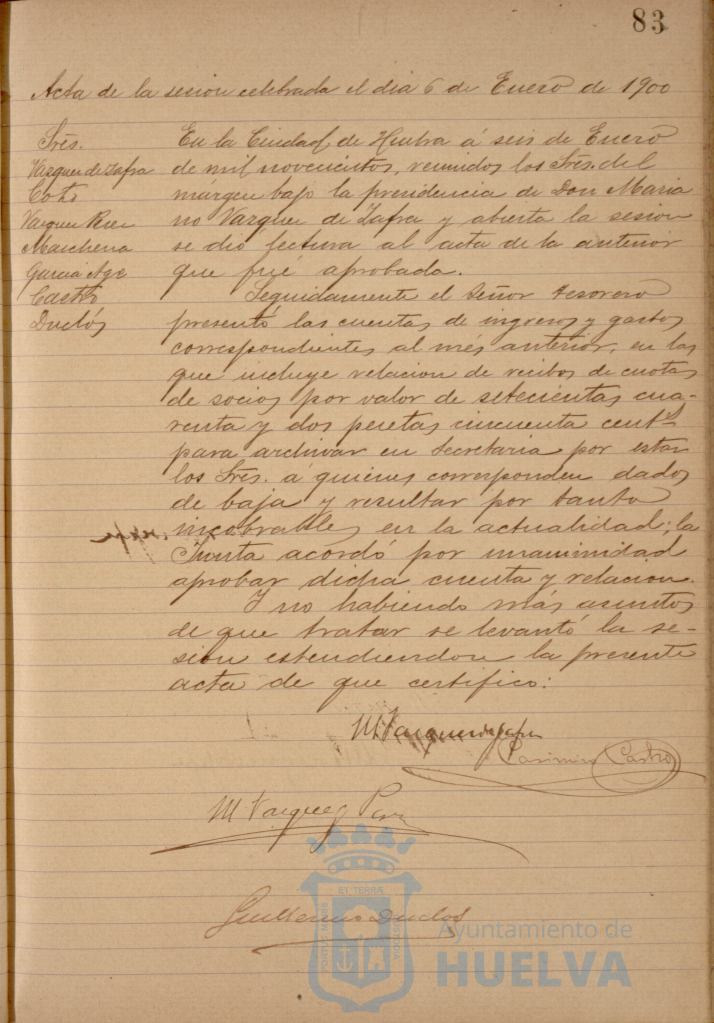 83
Acta de la sesion celebrada el dia 6 de Enero de 1900
Sres.
Vazquez de Zafra
Coto
Vazquez
Marchena
Garcia
Castro
Duclós
En la Ciudad de Huelva á seis de Enero
de mil novecientos, reunidos los Sres. del
márgen bajo la presidencia de Don Maria
no Vazquez de Zafra y abierta la sesion
se dio lectura al acta de la anterior
que fué aprobada.
Seguidamente el Señor tesorero
presentó las cuentas de ingresos y gastos
correspondientes al més anterior, en las
que incluye relacion de recibos de cuotas
de socios por valor de setecientas cua-
renta y dos pesetas cincuenta cents
para archivar en Secretaria por estar
los Sres. á quienes corresponden dados
de baja y resultar por tanto
incobrables en la actualidad; la
Junta acordó por unanimidad
aprobar dicha cuenta y relacion.
Y no habiendo más asuntos
de que tratar se levantó la se-
sion estendiendose la presente
acta de que certifico:
M. Vazquez de Zafra
Casimiro Castro
M Vazquez
Guillermo Duclos
ET TERRÆ
PORTUS MARIS
CUSTODIA
Ayuntamiento de
HUELVA